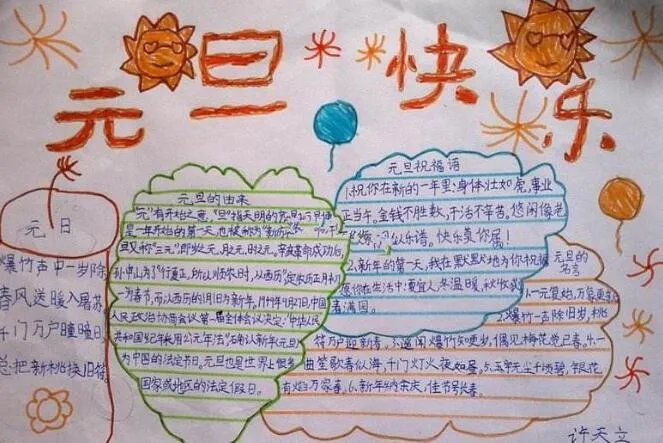 元旦快乐
元日
爆竹声中一岁除
春风送暖入屠苏
千门万户曈曈日
总把新桃换旧符
元旦的由来
"元"有开始之意,"旦"指天明的意思
是一年开始的第一天也被称为"新历年"
旦又称"三元",即岁之元、月之元、时之元。辛亥革命成功后
孙中山为了"行夏正,所以顺农时,从西历"定农历正月初一
为春节,而以西历的1月1日为新年,1949年9月27日,中国
人民政治协商会议第一届全体会议决定"中华人民
共和国纪年采用公元年法"
为中国的法定节日。元旦也是世界上很多
国家或地区的法定假日。
元旦祝福语
1.祝你在新的一年里:身体壮如虎,事业
正当午,金钱不胜数,干活不辛苦,悠闲像老
似乐谱。快乐莫你属!
2.新年的第一天,我在默默地为你祝福
愿你在生活中:夏宜人,冬温暖,秋收成
春满园。
元旦的
名言
1.一元复始,万象更
2.爆竹一声除旧岁,桃
符万户迎新春,3.遥闻爆竹知更岁,偶见梅花觉已春。4.一
曲笙歌春似海,千门灯火夜如昼。5.五
6.新年纳余庆,佳节号长春。
许天立